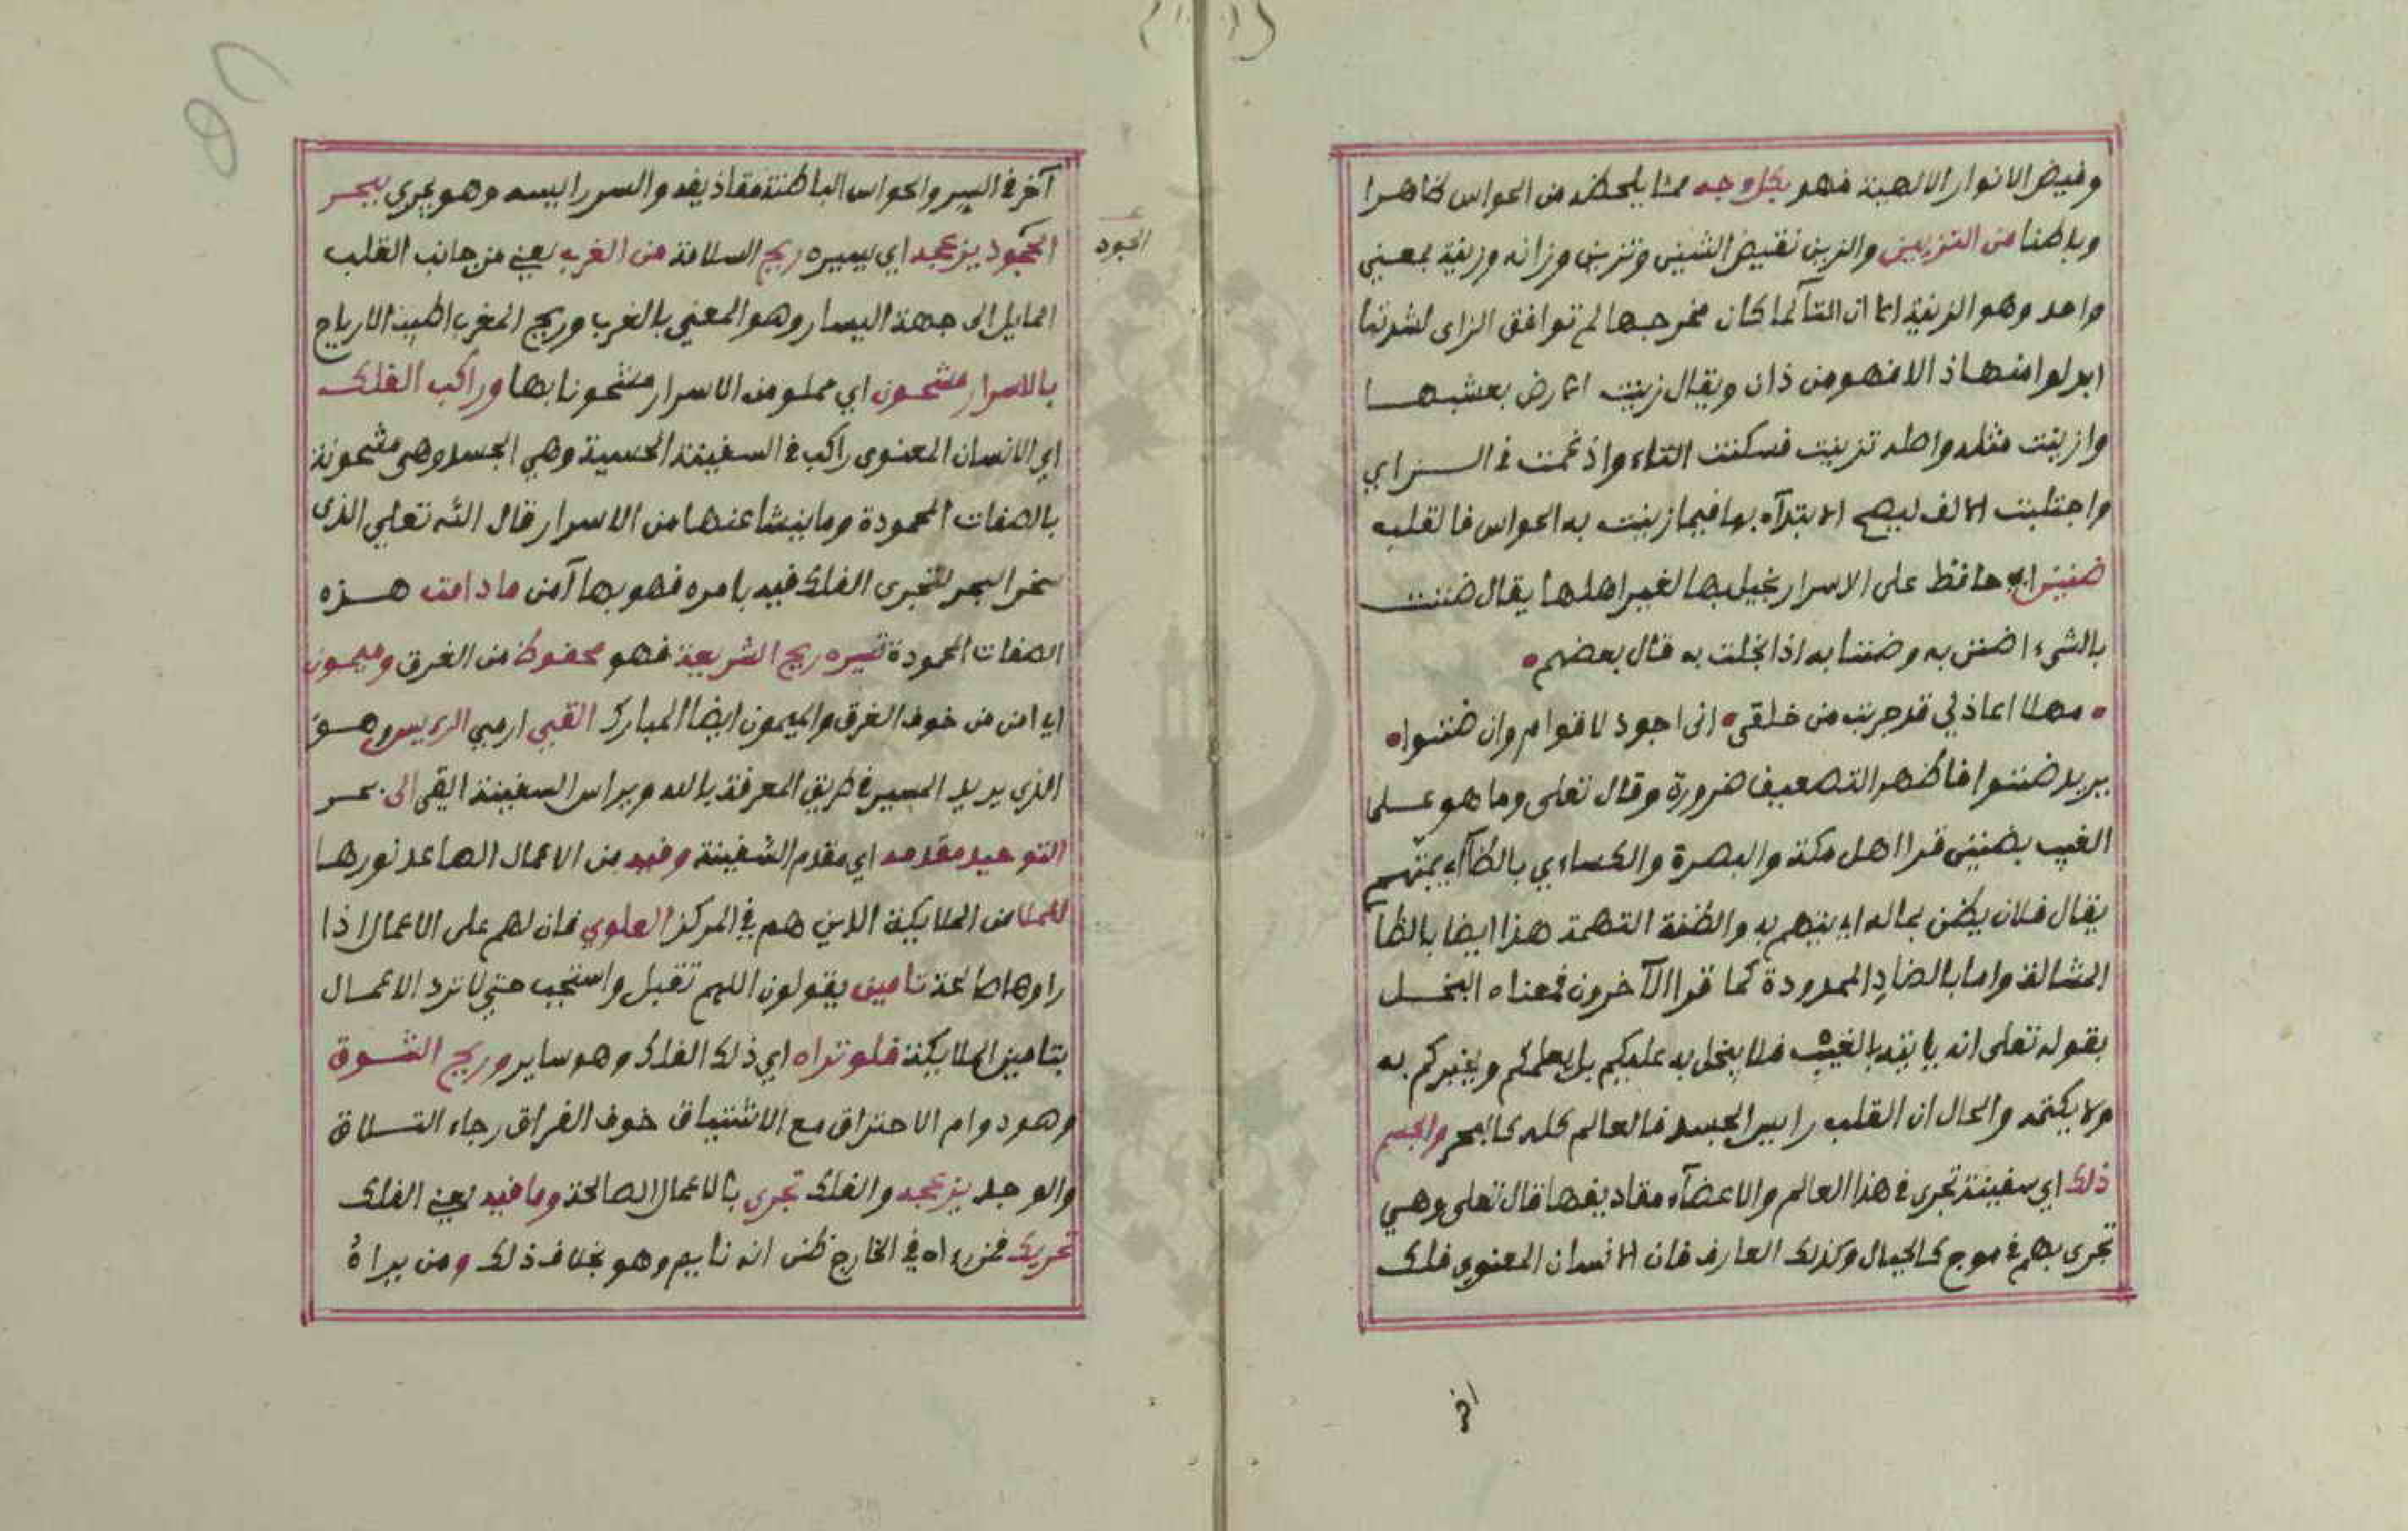 وفيض الانوار الالهية فهو بكل وجه مما يلحظه من الحواس ظاهرا
وباطنا من التزيين والزين نقيض الشين وتزين وزانه وزينة بمعني
واحد وهو الزينة الا ان التآ لما كان مخرجها لم توافق الزاي لشدتها
ابدلوا منها ذالا فهو من ذان ويقال زينت الارض بعشبها
وازينت مثله واصله تزينت فسكنت التاء واذغمت في الزاي
واجتلبت الالف ليصح الابتدآء بها فيما زينت به الحواس فالقلب
ضنين اي حافظ على الاسرار بخيل بها لغير اهلها يقال ضننت
بالشيء اضنن به وضننا به اذا بخلت به قال بعضهم
مهلا اعاذلي قد جربت من خلقي اني اجود لاقوام وان ضننوا
يريد ضننوا فاظهر التضعيف ضرورة وقال تعلى وما هو على
الغيب بضنين قرا اهل مكة والبصرة والكساءي بالظآ اي بمتهم
يقال فلان يظن بماله اي يتهم به والظنة التهمة هذا ايضا بالظآ
المشالة واما بالضاد الممدودة كما قرا الآخرون فمعناه البخل
بقوله تعلى انه ياتيه بالغيب فلا يبخل به عليكم بل يعلمكم ويخبركم به
ولا يكتمه والحال ان القلب رايس الجسد فالعالم كله كالبحر والجسم
ذلك اي سفينة تجرى في هذا العالم والاعضآء مقاديفها قال تعلى وهي
تجرى بهم في موج كالجبال وكذلك العارف فان الانسان المعنوي فلك
اخر
آخر في السير والحواس الباطنة مقاذيفه والسر رايسه وهو يجرى ببحر
الجود يزعجه اي يسيره ريح السلامة من الغرب يعني من جانب القلب
الجود
المايل الى جهة اليسار وهو المعني بالغرب وريح المغرب اطيب الارياح
بالاسرار مشحون اي مملو من الاسرار مشحونا بها وراكب الفلك
اي الانسان المعنوى راكب في السفينة الحسية وهي الجسد وهي مشحونة
بالصفات المحمودة وما ينشا عنها من الاسرار قال الله تعلي الذى
سخر البحر لتجرى الفلك فيه بامره فهو بها آمن ما دامت هذه
الصفات المحمودة تسيره ريح الشريعة فهو محفوظ من الغرق وميمون
اي امن من خوف الغرق والميمون ايضا المبارك القى ارمي الريس وهو
الذى يريد المسير في طريق المعرفة بالله وبراس السفينة القى الى بحر
التوحيد مقدمه اي مقدم السفينة وفيه من الاعمال الصاعد نورها
للملا من الملايكة الذين هم في المركز العلوي فان لهم على الاعمال اذا
راوها صالحة تامين يقولون اللهم تقبل واستجب حتي لا ترد الاعمال
بتامين الملايكة فلو تراه اي ذلك الفلك وهو ساير وريح الشوق
وهو دوام الاحتراق مع الاشتياق خوف الفراق رجاء التلاق
والوجد يزعجه والفلك تجرى بالاعمال الصالحة وما فيه يعني الفلك
تحريك فمن رءاه في الخارج ظن انه نايم وهو بخلاف ذلك ومن يراه